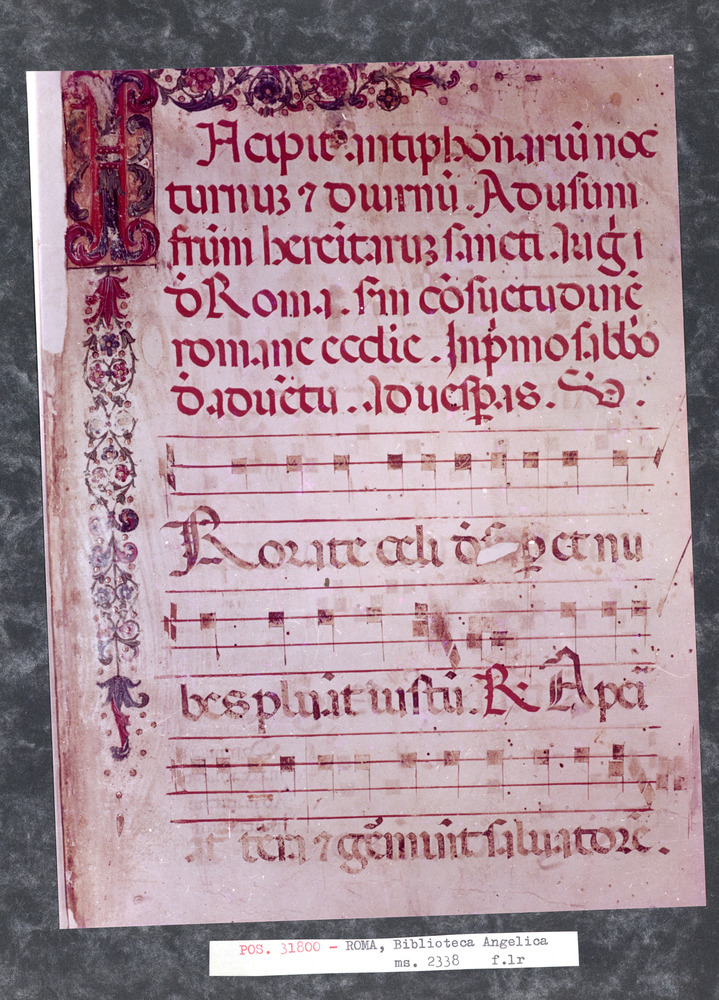 Incipit antiphonariū noc
turnuꝫ ⁊ diurnū. Ad usum
frūm hereītaruꝫ sancti. Augi
đ Roma. sm cōsuetudinē
romane ecclie. In p̄mo sabbo
đ aduētu. ad uesp̄as. V̄.
Rorate celi đ sup et nu
bes pluāt iustū. R Apei
at tēra ⁊ gēminēt saluatorē.
POS. 31800 - ROMA, Biblioteca Angelica
ms. 2338 f.1r